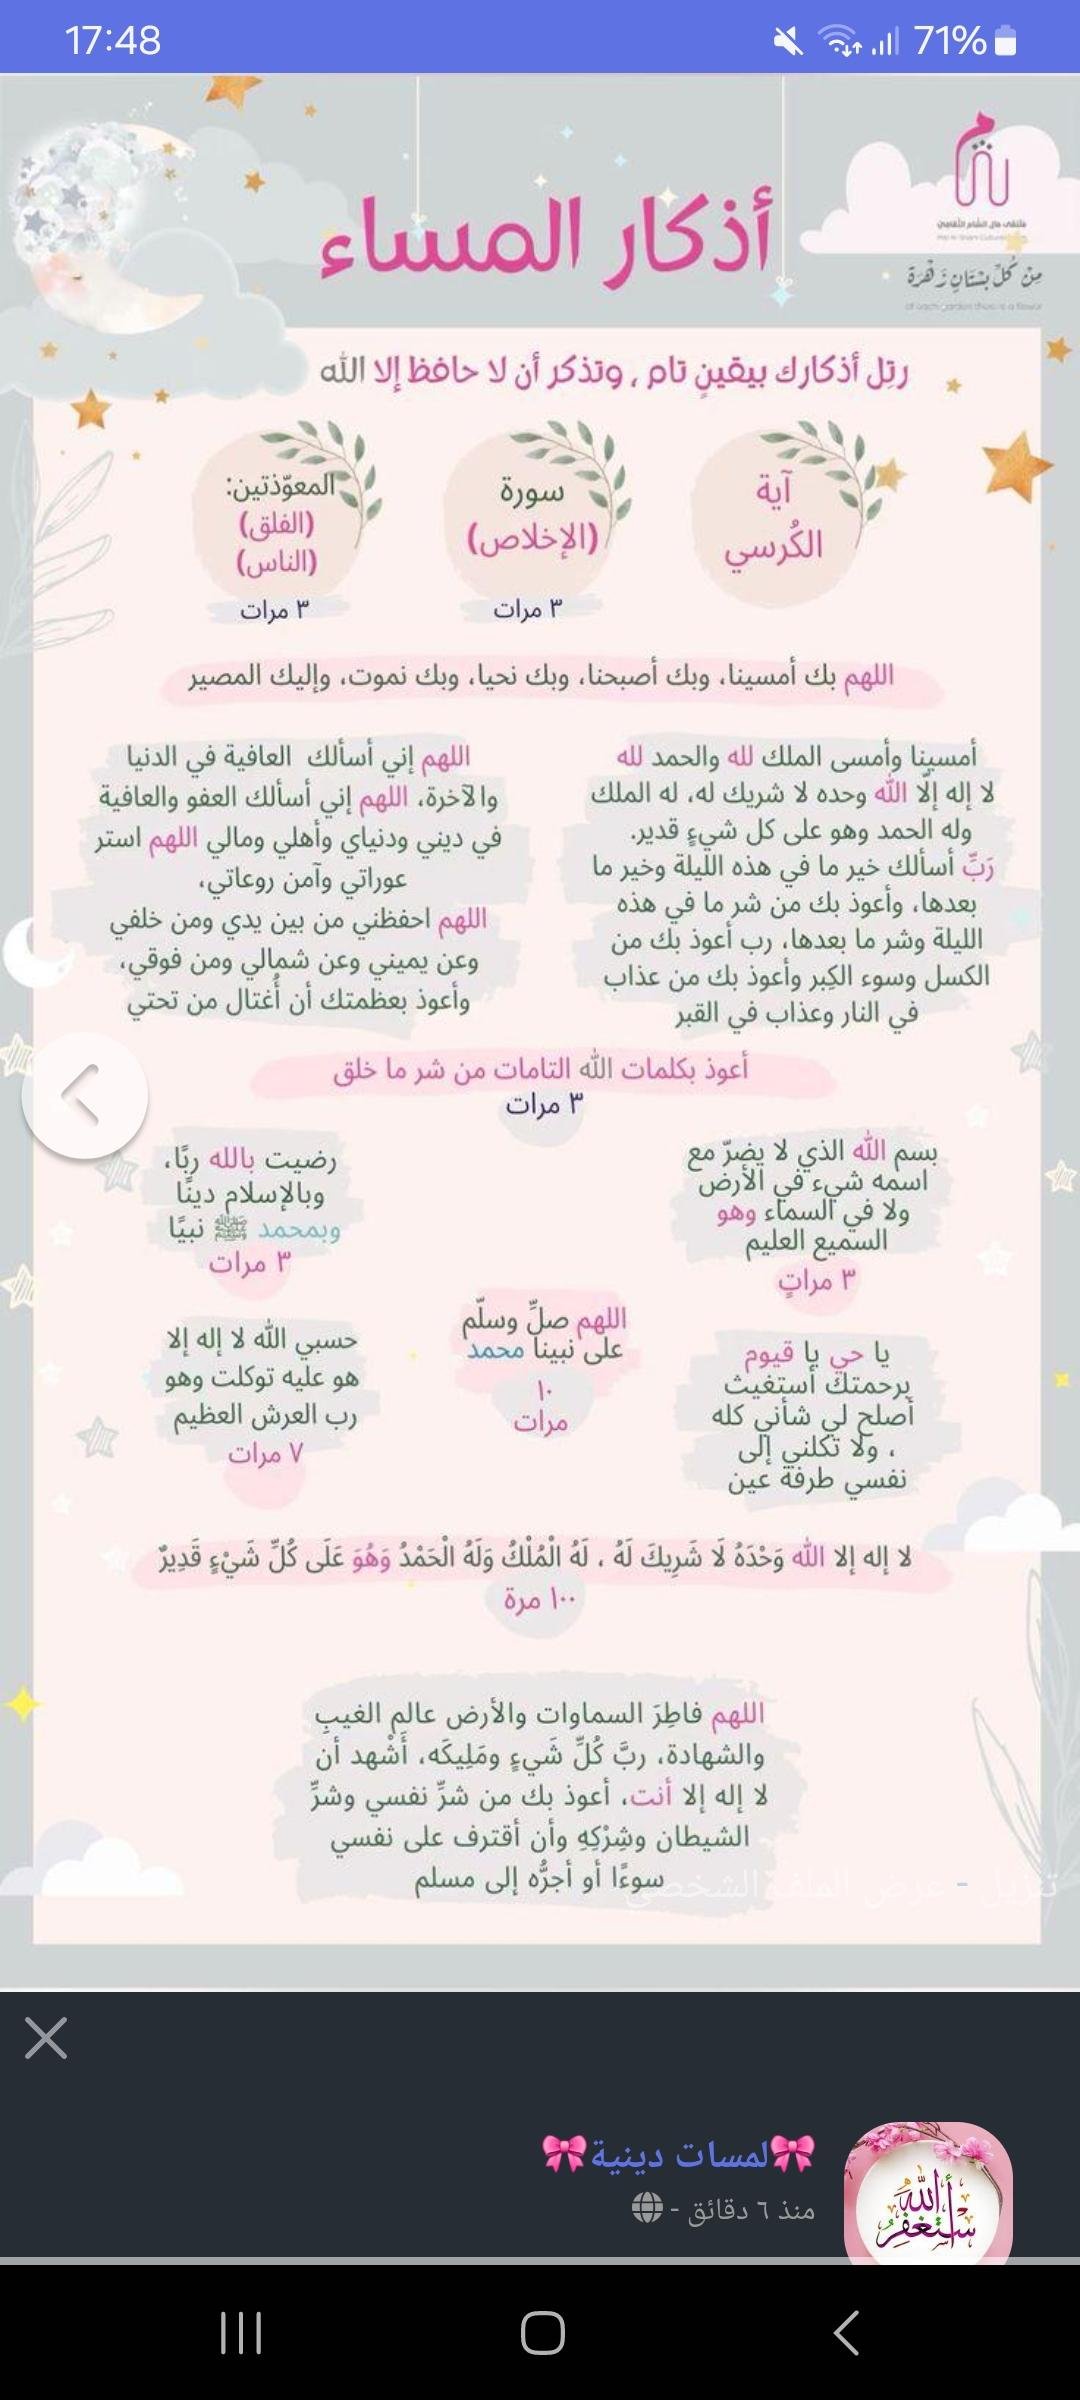 17:48
71%
أذكار المساء
ملتقى مال الشام الثقافي
مِنْ كُلِّ بسْتَانٍ زَهْرَة
of each garden there is a flower
رتِل أذكارك بيقينٍ تام , وتذكر أن لا حافظ إلا الله
آية
الكُرسي
سورة
(الإخلاص)
٣ مرات
المعوّذتين:
(الفلق)
(الناس)
٣ مرات
اللهم بك أمسينا، وبك أصبحنا، وبك نحيا، وبك نموت، وإليك المصير
أمسينا وأمسى الملك لله والحمد لله
لا إله إلّا الله وحده لا شريك له، له الملك
وله الحمد وهو على كل شيءٍ قدير.
رَبِّ أسألك خير ما في هذه الليلة وخير ما
بعدها، وأعوذ بك من شر ما في هذه
الليلة وشر ما بعدها، رب أعوذ بك من
الكسل وسوء الكِبر وأعوذ بك من عذاب
في النار وعذاب في القبر
اللهم إني أسألك العافية في الدنيا
والآخرة، اللهم إني أسألك العفو والعافية
في ديني ودنياي وأهلي ومالي اللهم استر
عوراتي وآمن روعاتي،
اللهم احفظني من بين يدي ومن خلفي
وعن يميني وعن شمالي ومن فوقي،
وأعوذ بعظمتك أن أُغتال من تحتي
أعوذ بكلمات الله التامات من شر ما خلق
٣ مرات
بسم الله الذي لا يضرّ مع
اسمه شيء في الأرض
ولا في السماء وهو
السميع العليم
٣ مراتٍ
رضيت بالله ربًا،
وبالإسلام دينًا
وبمحمد ﷺ نبيًا
٣ مرات
يا حي يا قيوم
برحمتك أستغيث
أصلح لي شأني كله
، ولا تكلني إلى
نفسي طرفة عين
اللهم صلِّ وسلّم
على نبينا محمد
١٠
مرات
حسبي الله لا إله إلا
هو عليه توكلت وهو
رب العرش العظيم
٧ مرات
لا إله إلا الله وَحْدَهُ لَا شَرِيكَ لَهُ ، لَهُ الْمُلْكُ وَلَهُ الْحَمْدُ وَهُوَ عَلَى كُلِّ شَيْءٍ قَدِيرٌ
١٠٠ مرة
اللهم فاطِرَ السماوات والأرض عالم الغيبِ
والشهادة، ربَّ كُلِّ شَيءٍ ومَلِيكَه، أَشْهد أن
لا إله إلا أنت، أعوذ بك من شرِّ نفسي وشرِّ
الشيطان وشِرْكِهِ وأن أقترف على نفسي
سوءًا أو أجرُّه إلى مسلم
تنزيل - عرض الملف الشخصي
🎀لمسات دينية🎀
منذ ٦ دقائق -
أستغفر الله